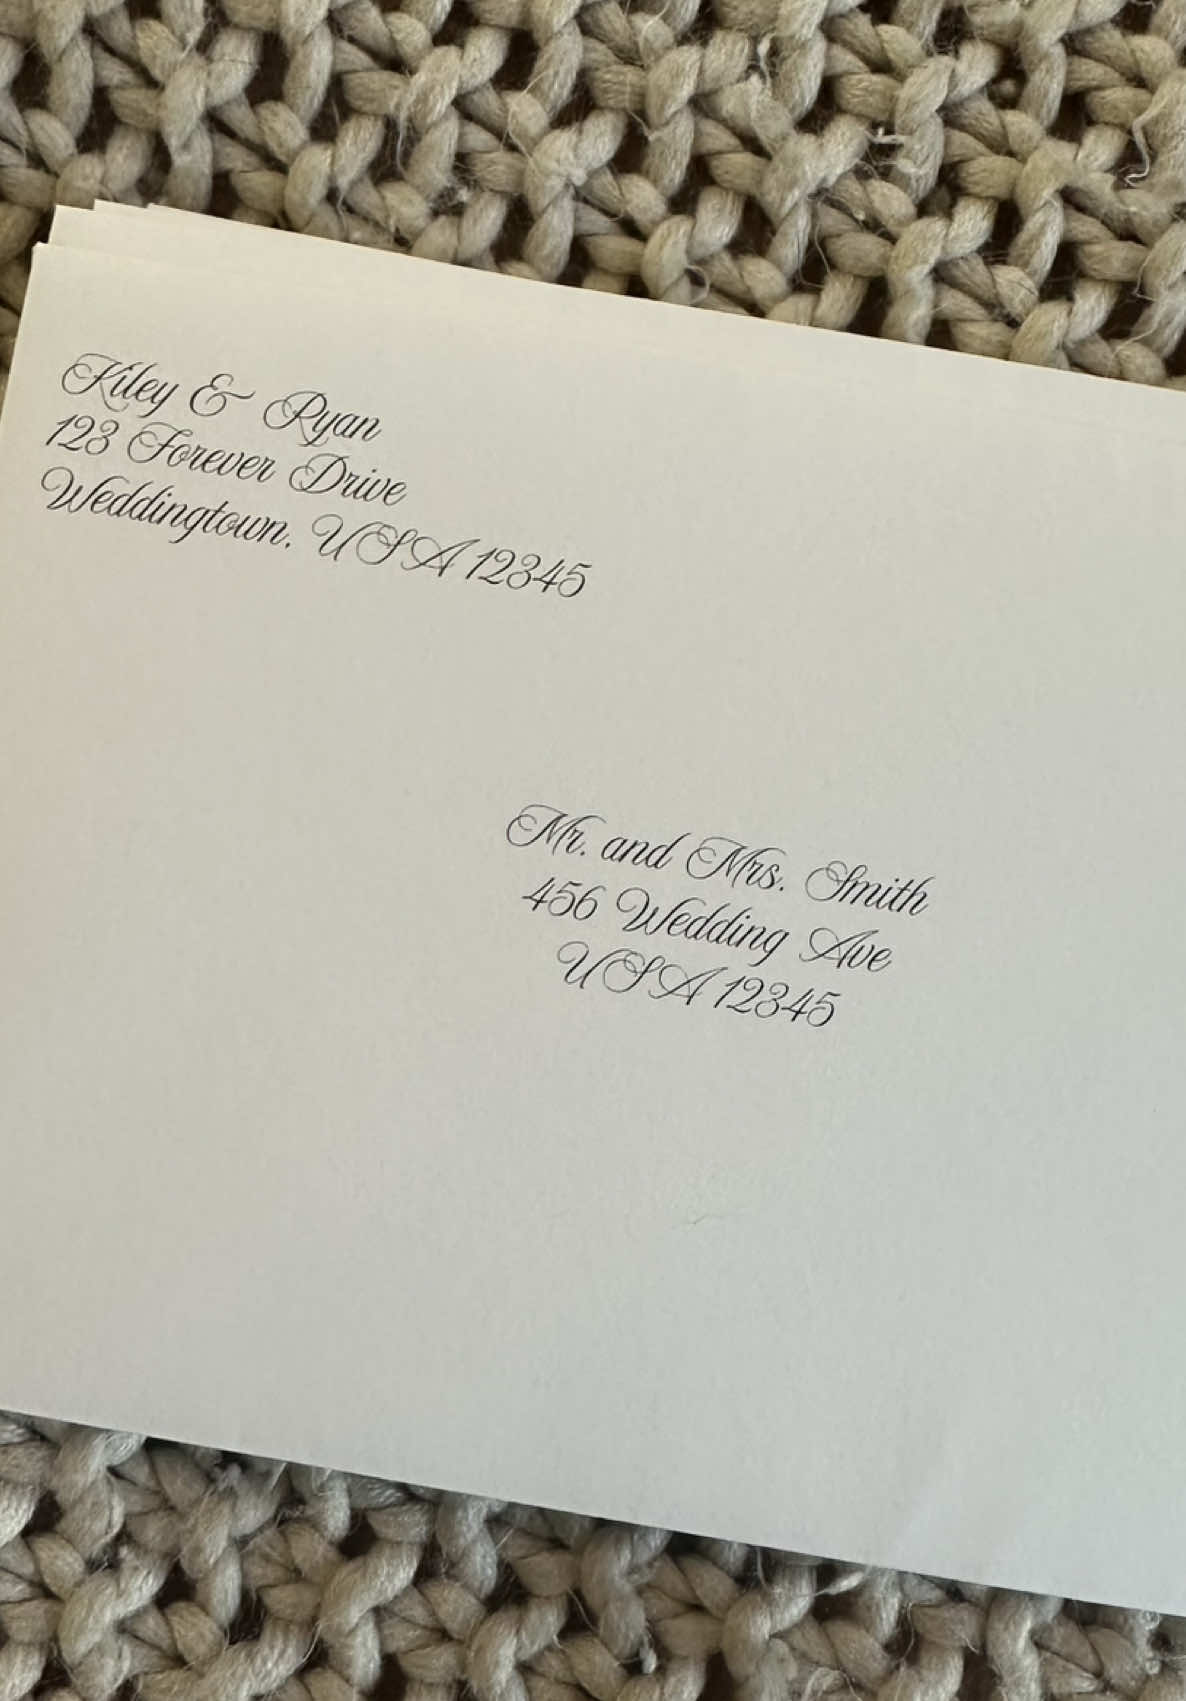 Kiley & Ryan
123 Forever Drive
Weddingtown, USA 12345
Mr. and Mrs. Smith
456 Wedding Ave
USA 12345